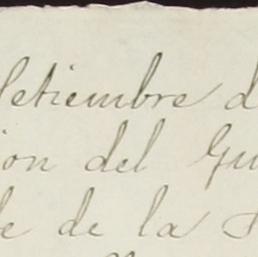 Setiembre d
ion del Gu
le de la